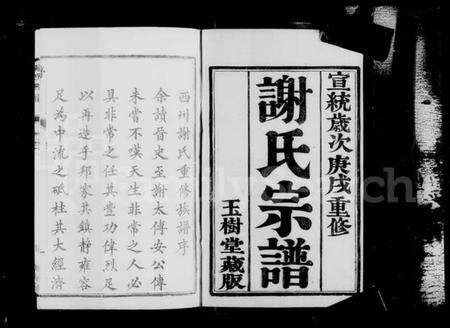 宣統歲次庚戌重修
謝氏宗譜
玉樹堂藏版
西州謝氏重修族譜序
余讀晉史至謝太傅安公傳
未嘗不嘆天生非常之人必
具非常之任其豐功偉烈足
以再造乎邦家其鎮靜雍容
足為中流之砥柱其大經濟